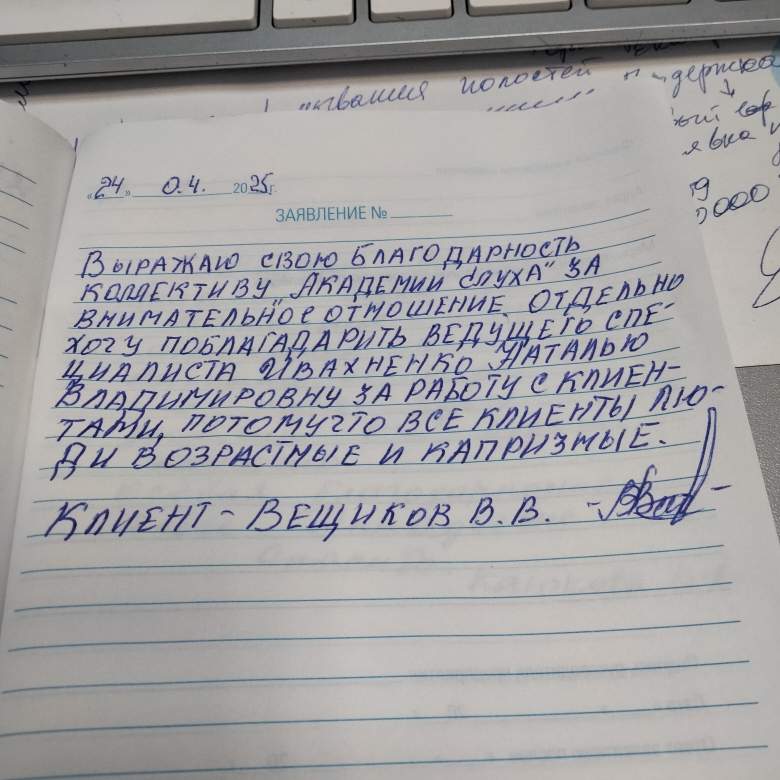 ывания полостей
держка
"24" 0.4. 2025г.
ЗАЯВЛЕНИЕ №
явка
000
Выражаю свою благодарность
коллективу „Академии слуха" за
внимательное отношение. Отдельно
хочу поблагадарить ведущего спе-
циалиста Ивахненко Наталью
Владимировну за работу с клиен-
тами, потомучто все клиенты лю-
ди возрастные и капризные.
Клиент - Вещиков В. В.